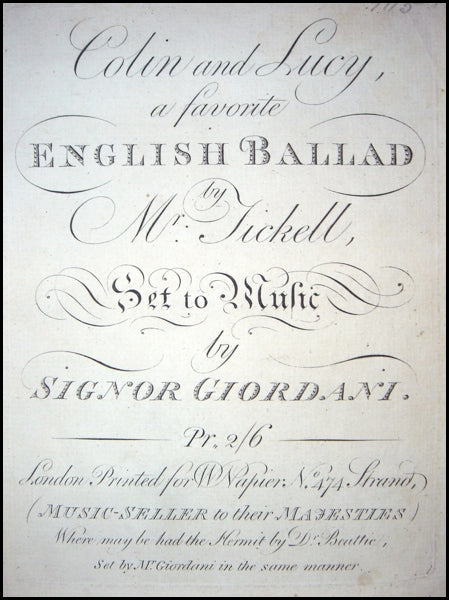 Colin and Lucy,
a favorite
ENGLISH BALLAD
by
Mr. Tickell,
Set to Music
by
SIGNOR GIORDANI.
Pr. 2/6
London Printed for W Napier No. 474 Strand,
(MUSIC-SELLER to their MAJESTIES)
Where may be had the Hermit by Dr. Beattie,
Set by Mr. Giordani in the same manner.